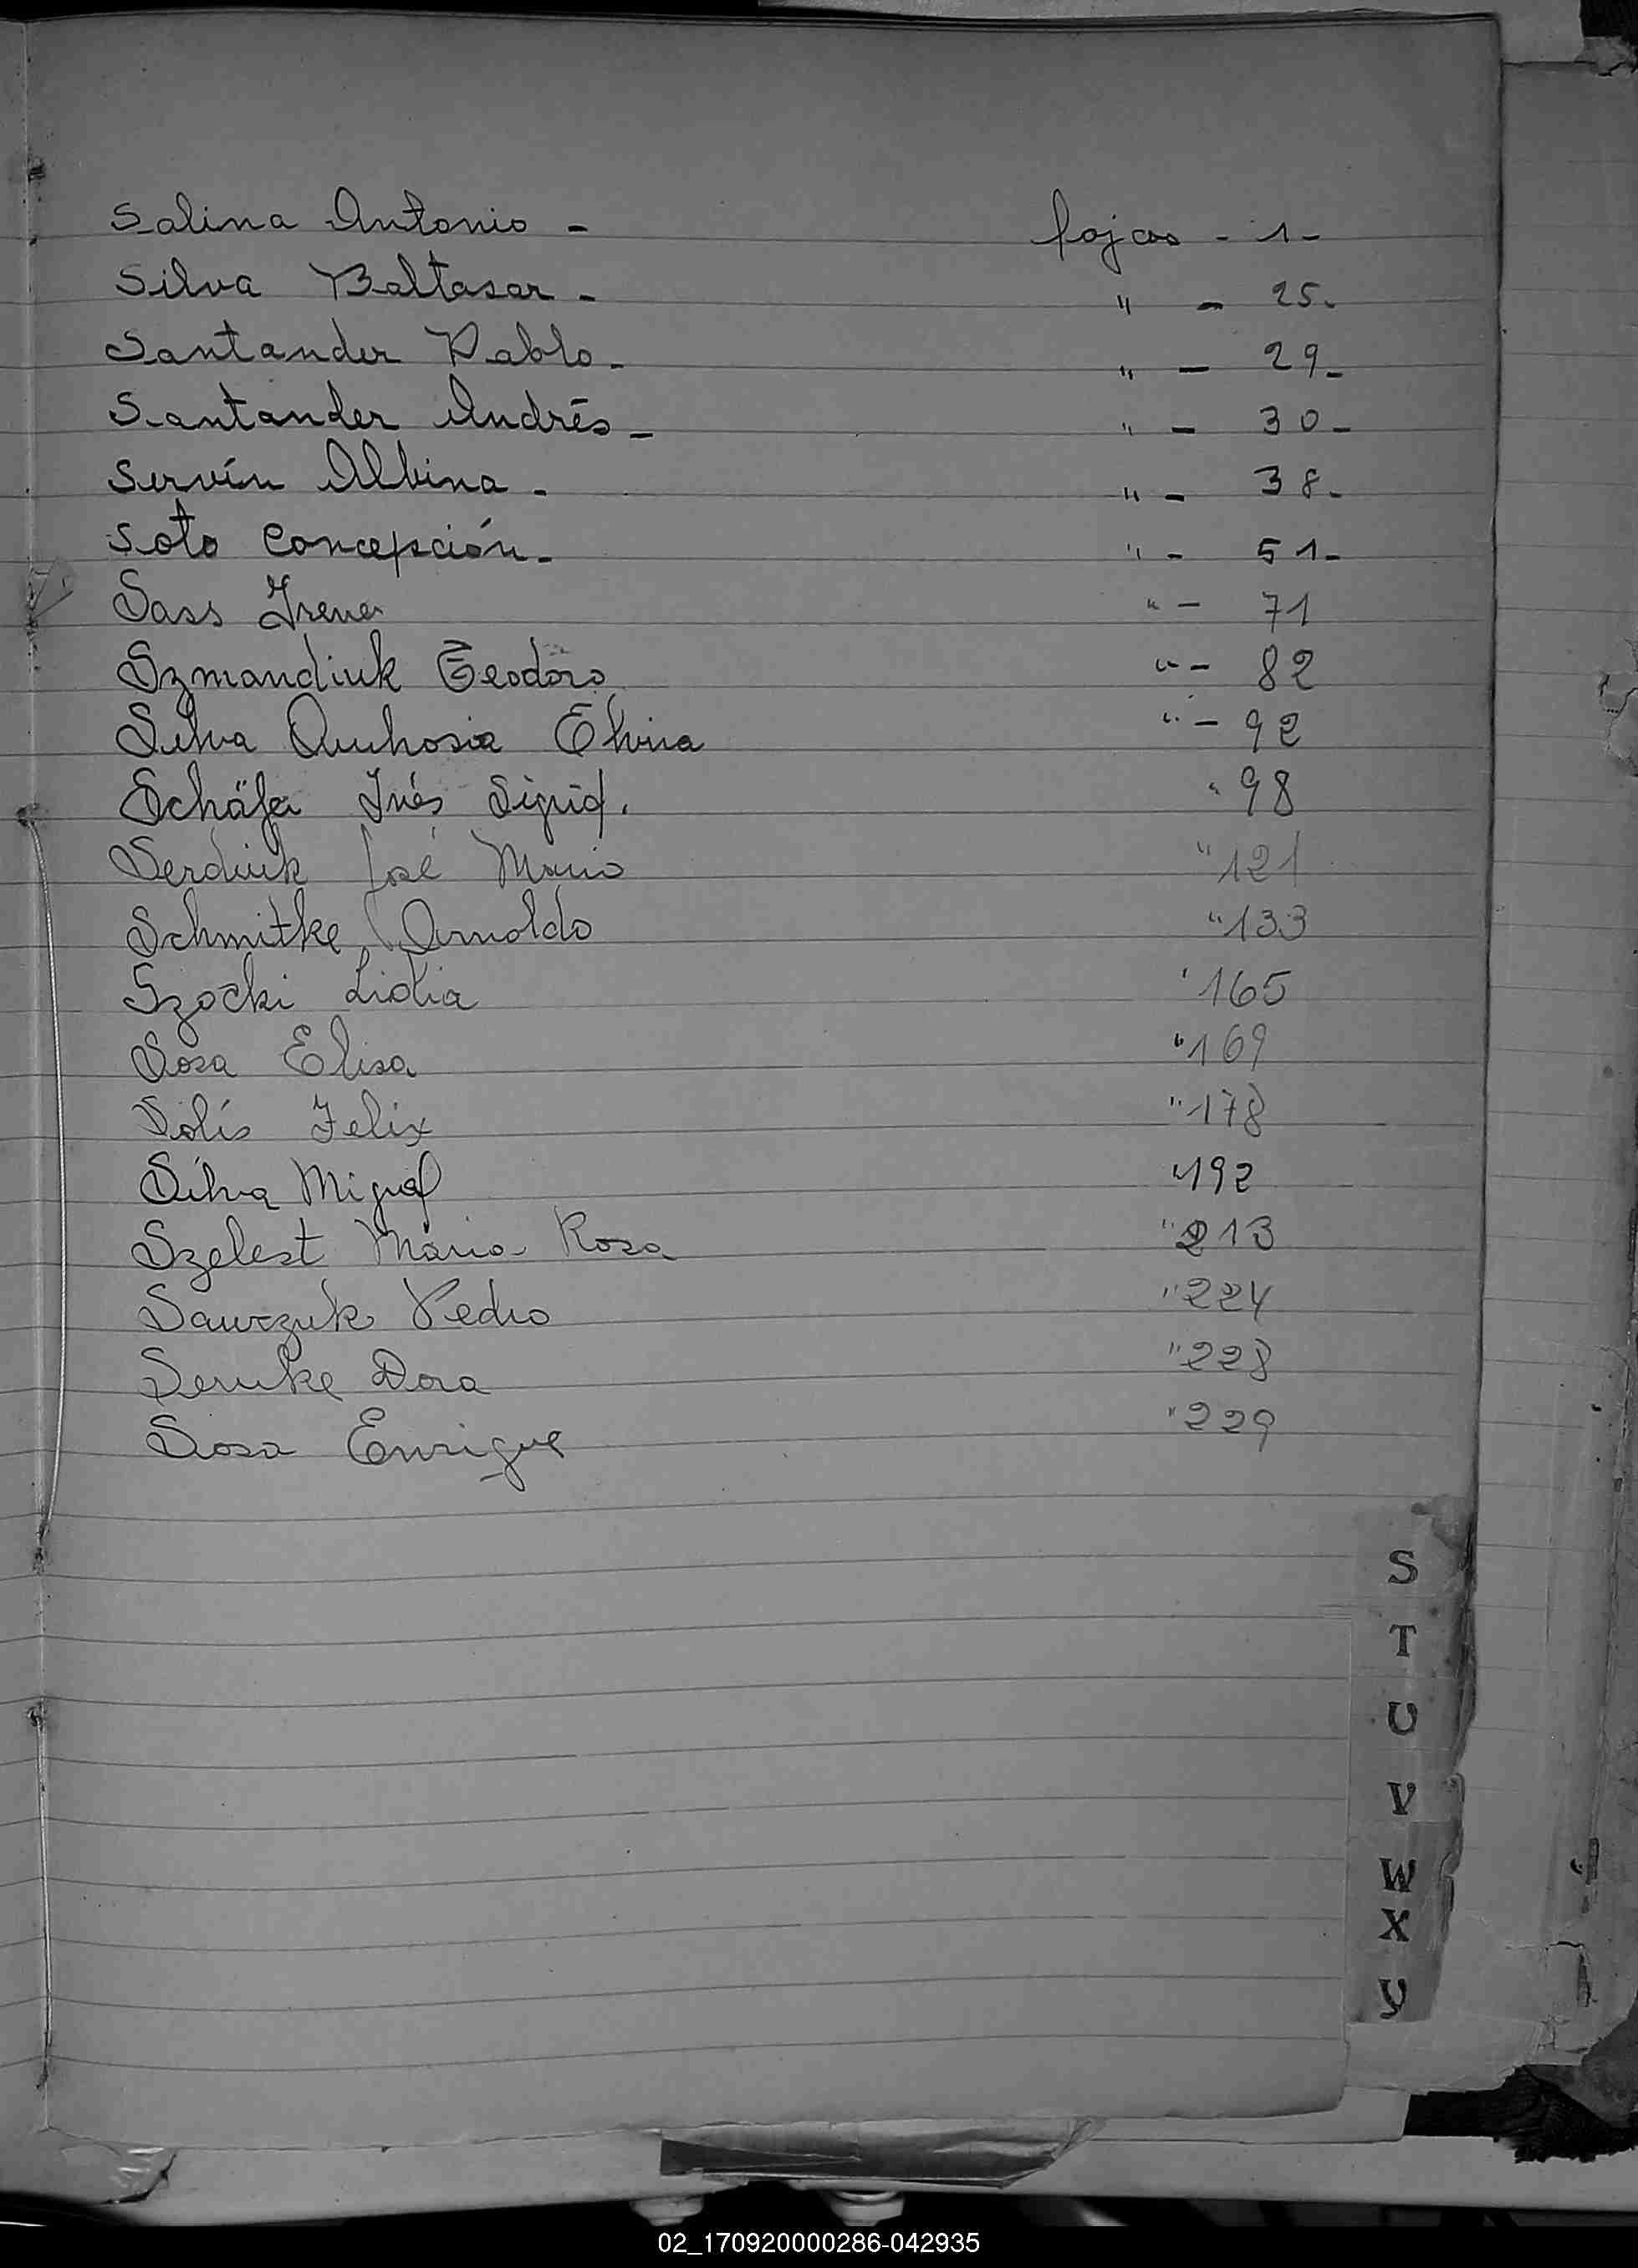 Salina Antonio - fojas - 1-
Silva Baltasar - " - 25-
Santander Pablo - " - 29-
Santander Andrés - " - 30-
Servín Albina - " - 38-
Soto Concepción - " - 51-
Sass Irene " - 71
Szmandiuk Teodoro " - 82
Silva Ambrosia Elvira " - 92
Schäfer Inés Sigrid. " 98
Serdiuk José Mario " 121
Schmitke Arnoldo " 133
Szocki Lidia " 165
Sosa Elisa " 169
Solís Felix " 178
Silva Miguel " 192
Szelest María Rosa " 213
Sawczuk Pedro " 224
Dora " 228
Sosa Enrique " 229
S
T
U
V
W
X
Y
02_170920000286-042935